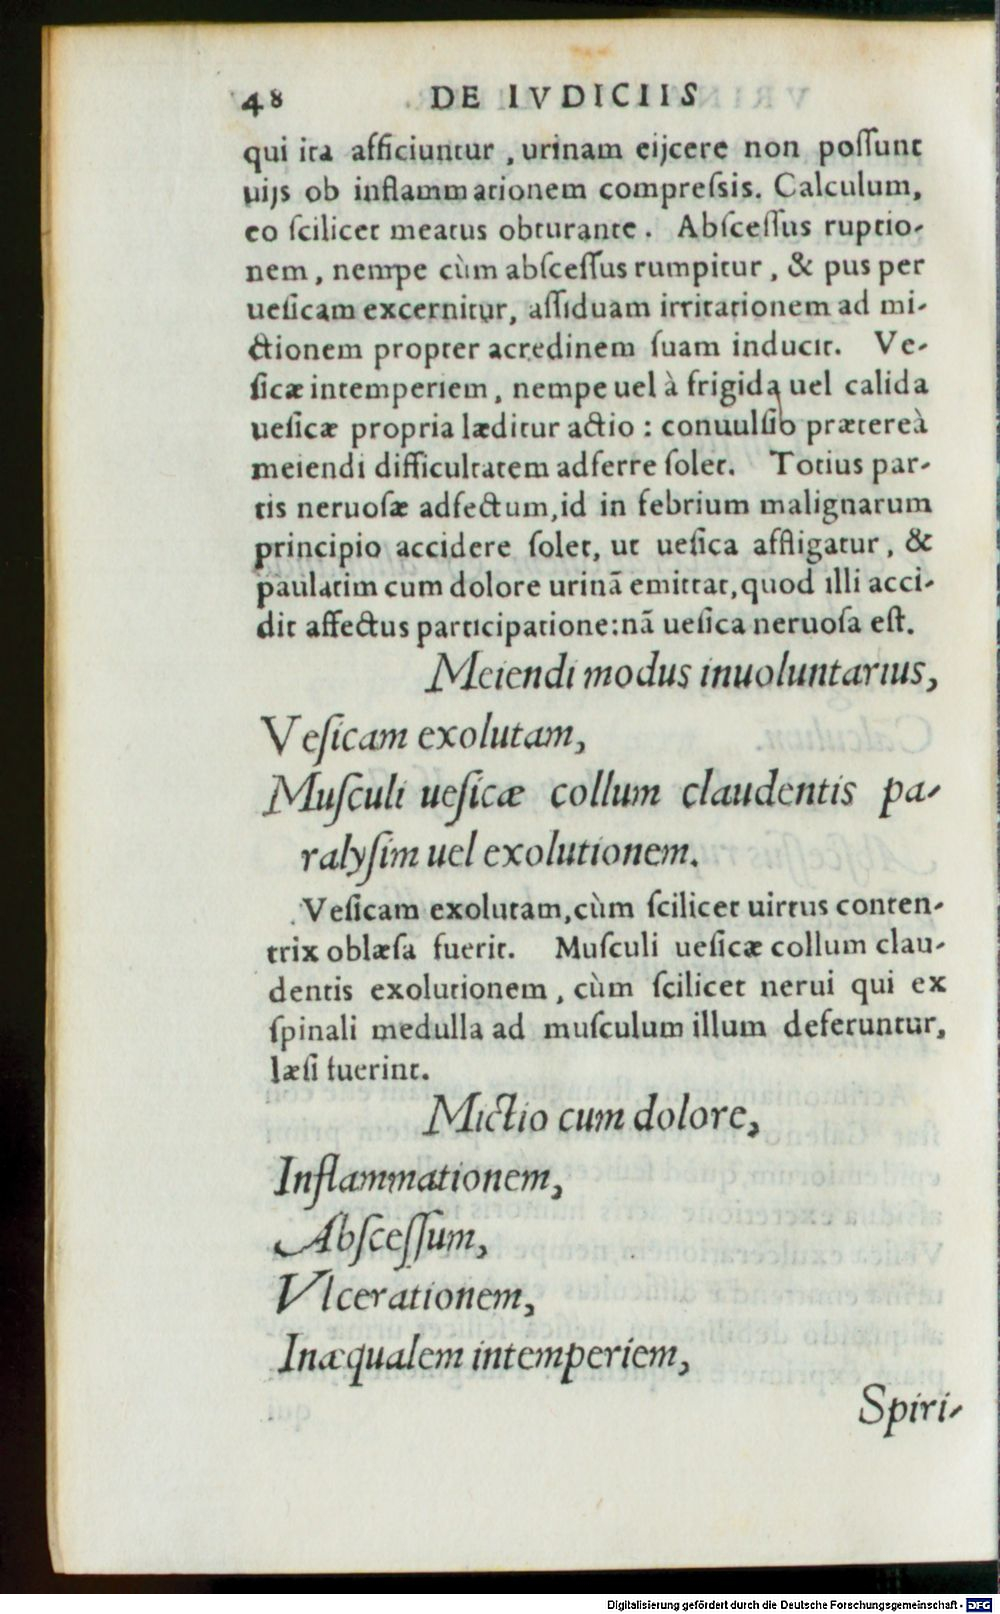 48 DE IVDICIIS
qui ita afficiuntur, urinam eijcere non poſſunt
uijs ob inflammationem compreſsis. Calculum,
eo ſcilicet meatus obturante. Abſceſſus ruptio-
nem, nempe cùm abſceſſus rumpitur, & pus per
ueſicam excernitur, aſſiduam irritationem ad mi-
ctionem propter acredinem ſuam inducit. Ve-
ſicæ intemperiem, nempe uel à frigida uel calida
ueſicæ propria læditur actio: conuulſio prætereà
meiendi difficultatem adferre ſolet. Totius par-
tis neruoſæ adfectum, id in febrium malignarum
principio accidere ſolet, ut ueſica affligatur, &
paulatim cum dolore urinã emittat, quod illi acci-
dit affectus participatione: nã ueſica neruoſa eſt.
Meiendi modus inuoluntarius,
Veſicam exolutam,
Muſculi ueſicæ collum claudentis pa-
ralyſim uel exolutionem.
Veſicam exolutam, cùm ſcilicet uirtus conten-
trix oblæſa fuerit. Muſculi ueſicæ collum clau-
dentis exolutionem, cùm ſcilicet nerui qui ex
ſpinali medulla ad muſculum illum deferuntur,
læſi fuerint.
Mictio cum dolore,
Inflammationem,
Abſceſſum,
Vlcerationem,
Inæqualem intemperiem,
Spiri-
Digitalisierung gefördert durch die Deutsche Forschungsgemeinschaft - DFG